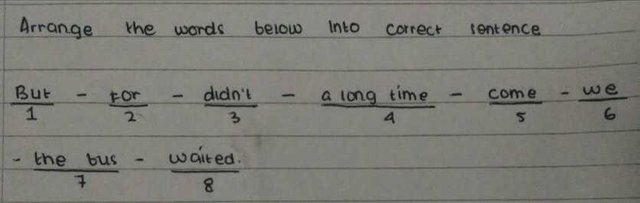 Arrange the words below into correct sentence
But - for - didn't - a long time - come - we
1 2 3 4 5 6
- the bus - waited.
7 8